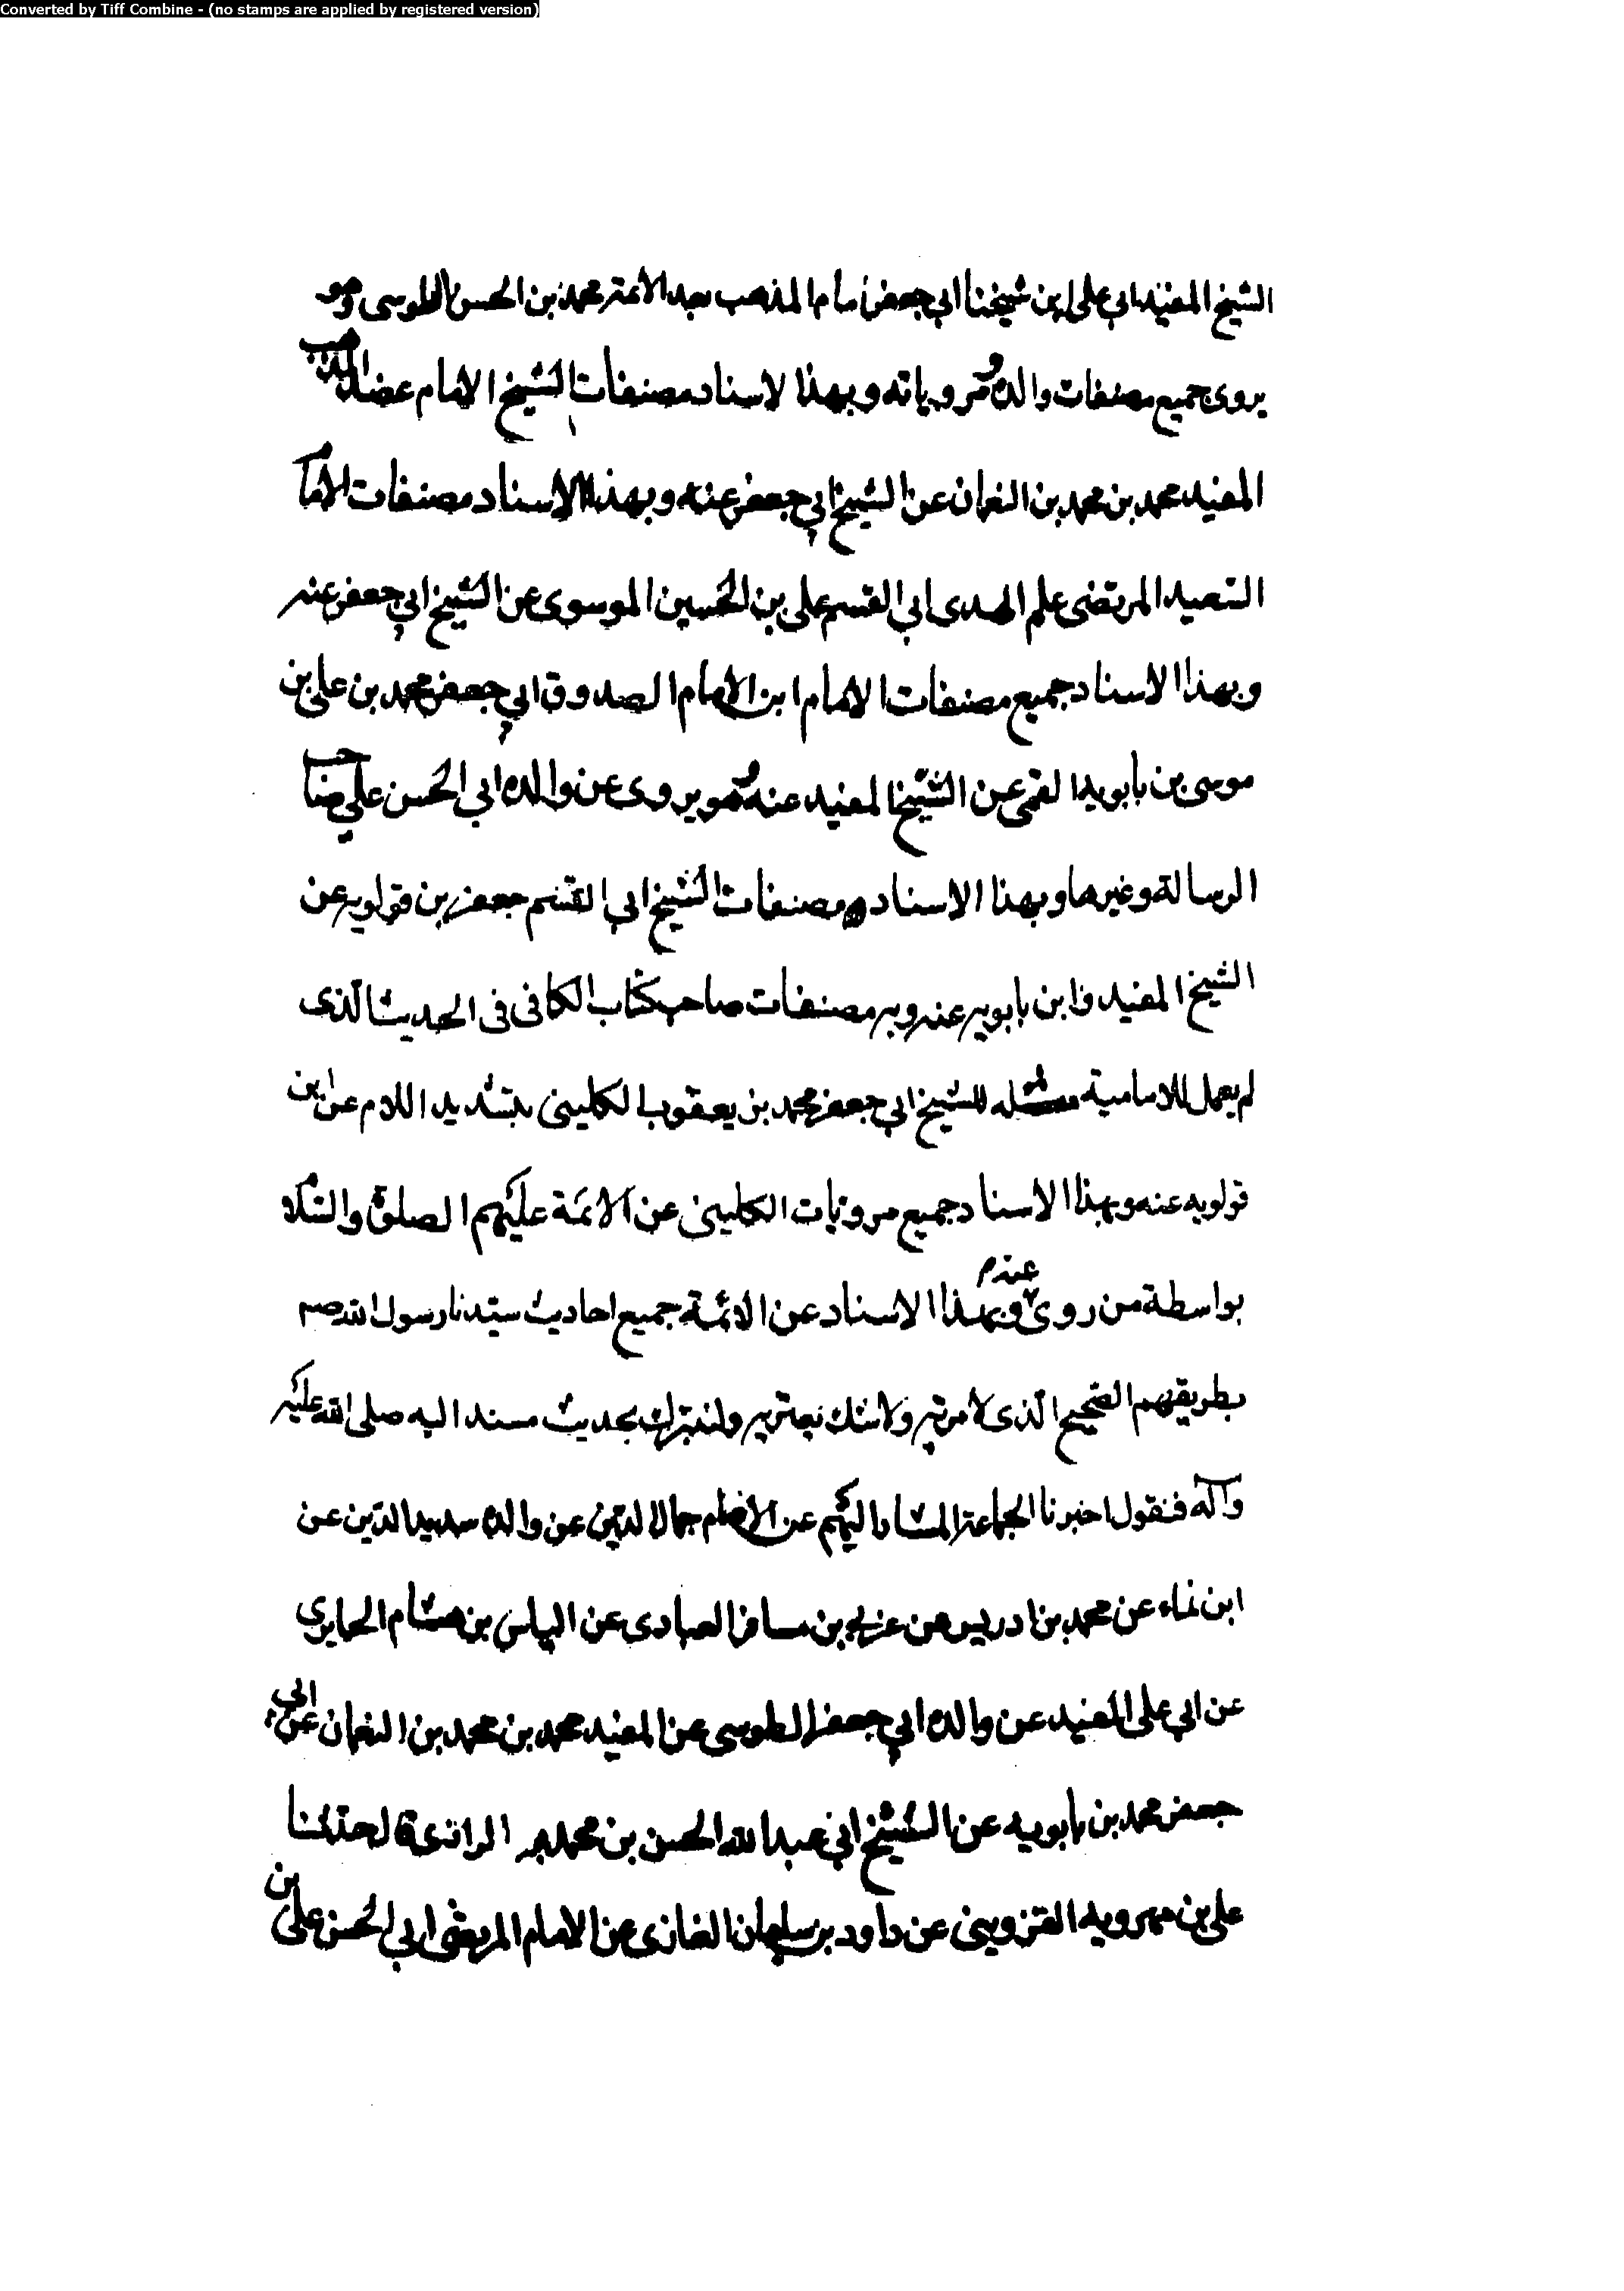 Converted by Tiff Combine - (no stamps are applied by registered version)
الشيخ المفيد ابي على ابن شيخنا ابي جعفر امام المذهب بعد الائمة محمد بن الحسن الطوسى وهو
يروى جميع مصنفات والده ومروياته وبهذا الاسناد مصنفات الشيخ الامام عضد المذهب
المفيد محمد بن محمد بن النعمان عن الشيخ ابي جعفر عنه وبهذا الاسناد مصنفات الامام
السعيد المرتضى علم الهدى ابي القسم على بن الحسين الموسوى عن الشيخ ابي جعفر عنه
وبهذا الاسناد جميع مصنفات الامام ابن الامام الصدوق ابي جعفر محمد بن على بن
موسى بن بابويه القمى عن الشيخ المفيد عنه وهو يروى عن والده ابي الحسن على صاحب
الرسالة وغيرها وبهذا الاسناد مصنفات الشيخ ابي القسم جعفر بن قولويه عن
الشيخ المفيد وابن بابويه عنه وبه مصنفات صاحب كتاب الكافى فى الحديث الذى
لم يعمل للامامية مثله للشيخ ابي جعفر محمد بن يعقوب الكلينى بتشديد اللام عن ابن
قولويه عنه وبهذا الاسناد جميع مرويات الكلينى عن الائمة عليهم الصلوة والسلام
بواسطة من روى عنهم وبهذا الاسناد عن الائمة جميع احاديث سيدنا رسول الله صم
بطريقهم الصحيح الذى لا مرية ولا شك يعتريه ولنتبرك بحديث مسند اليه صلى الله عليه
وآله فنقول اخبرنا الجماعة المشار اليهم عن الامام جمال الدين عن والده سديد الدين عن
ابن نماء عن محمد بن ادريس عن عربى بن مسافر العبادى عن الياس بن هشام الحايرى
عن ابي على المفيد عن والده ابي جعفر الطوسى عن المفيد محمد بن محمد بن النعمان عن ابي
جعفر محمد بن بابويه عن الشيخ ابي عبد الله الحسن بن محمد الرازى قال حدثنا
على بن مهرويه القزوينى عن داود بن سليمان الغازى عن الامام المرتضى ابي الحسن على بن